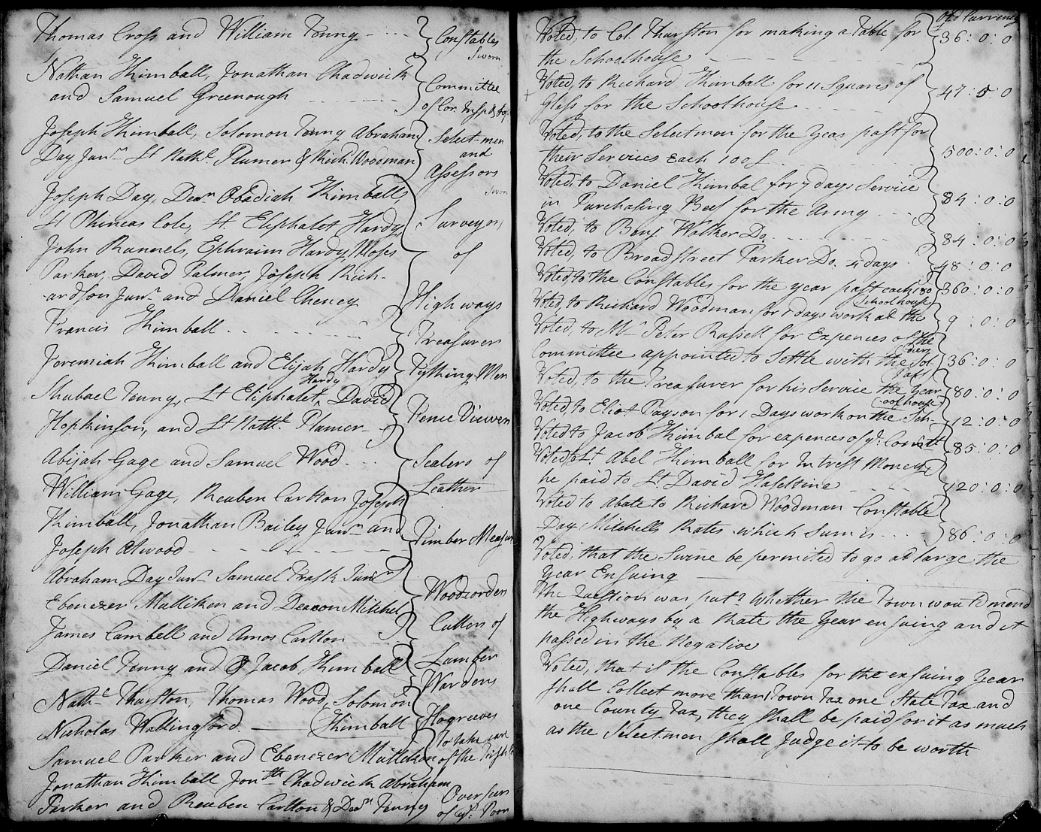 Thomas Cross and William Tenny - - - Constables Sworn
Nathan Kimball, Jonathan Chadwick
and Samuel Greenough Committee of Cor. Insp. &
Joseph Kimball, Solomon Tenny Abraham Select-men
Day Junr. Lt Nathl. Plumer & Richd. Woodman and Assessors Sworn
Joseph Day, Dea Obadiah Kimball,
Lt Phineas Cole, Lt Eliphalet Hardy, Surveyors
John Runnels, Ephraim Hardy, Moses of
Parker, David Palmer, Joseph Rich-
-ardson Junr. and Daniel Cheney Highways
Francis Kimball - - - Treasurer
Jeremiah Kimball and Elijah Hardy Tything Men
Shubael Tenny, Lt Eliphalet Hardy, David
Hopkinson, and Lt Nathl. Plumer - Fence Viewers
Abijah Gage and Samuel Wood - - - Sealers of Leather
William Gage, Reuben Carlton Joseph
Kimball, Jonathan Bailey Junr. and Timber Measurers
Joseph Atwood
Abraham Day Junr. Samuel Trask Junr.
Ebenezer Mulliken and Deacon Mitchel Woodcorders
James Cambell and Amos Carlton Cullers of Lumber
Daniel Tenny and Jacob Kimball Wardens
Nathl. Thurston, Thomas Wood, Solomon Kimball
Nicholas Wallingford. Hogreeves
Samuel Parker and Ebenezer Mulliken To take care of the
Jonathan Kimball Jonth. Chadwick Abraham
Parker and Reuben Carlton & Dead. Tenny Overseers of ye. Poor
Old Currency
Voted, to Col. Thurston for making a Table for
the Schoolhouse 36:0:0
Voted, to Richard Kimball for 11 Squares of
Glass for the Schoolhouse - - - 47:5:0
Voted, to the Selectmen for the Year past for
their Services each 100£ 500:0:0
Voted, to Daniel Kimbal for 7 days Service
in Purchasing Beef for the Army - - - 84:0:0
Voted, to Benj Walker Do. 84:0:0
Voted, to Broadstreet Parker Do. 4 days 48:0:0
Voted to the Constables for the year past each 360:0:0
Voted, to Richard Woodman for days work at the Schoolhouse 9:0:0
Voted, to Mr. Peter Russell for Expences of the
Committee appointed to Settle with the 36:0:0
Voted, to the Treasurer for his Service the Year past 180:0:0
Voted to Eliot Payson for 1 Days work on the Schoolhouse 12:0:0
Voted to Jacob Kimbal for expences of ye. Comitt 85:0:0
Voted to Lt. Abel Kimball for Intrest Money
he paid to Lt David Haseltine 420:0:0
Voted to Abate to Richard Woodman Constable
Day Mitchells Rates which Sum is - - - 86:0:0
Voted, that the Swine be permitted to go at large the
Year Ensuing
The Question was put? Whether the Town would mend
the Highways by a Rate the Year ensuing and it
passed in the Negative
Voted, that if the Constables for the ensuing Year
shall Collect more than Town Tax one State Tax and
one County Tax, they shall be paid for it as much
as the Selectmen shall Judge it to be worth